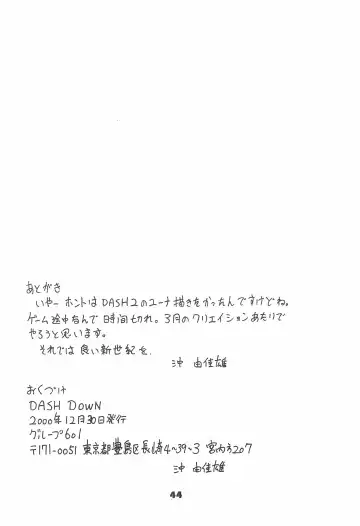 あとがき
いやー ホントはDASH2のユーナ描きたかったんですけどね。
ゲーム途中なんで時間切れ。3月のクリエイションあたりで
やろうと思います。
それでは良い新世紀を
沖 由佳雄
おくづけ
DASH DOWN
2000年12月30日発行
グループ601
〒171-0051 東京都豊島区長崎4-39-3 宮内方207
沖 由佳雄
44